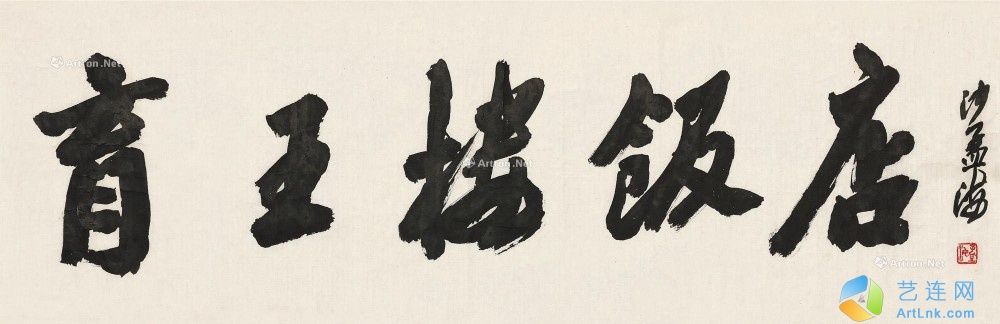 育王楼饭店
沙孟海
Artron.Net
Artron.Net
Artron.Net
艺连网
ArtLnk.com